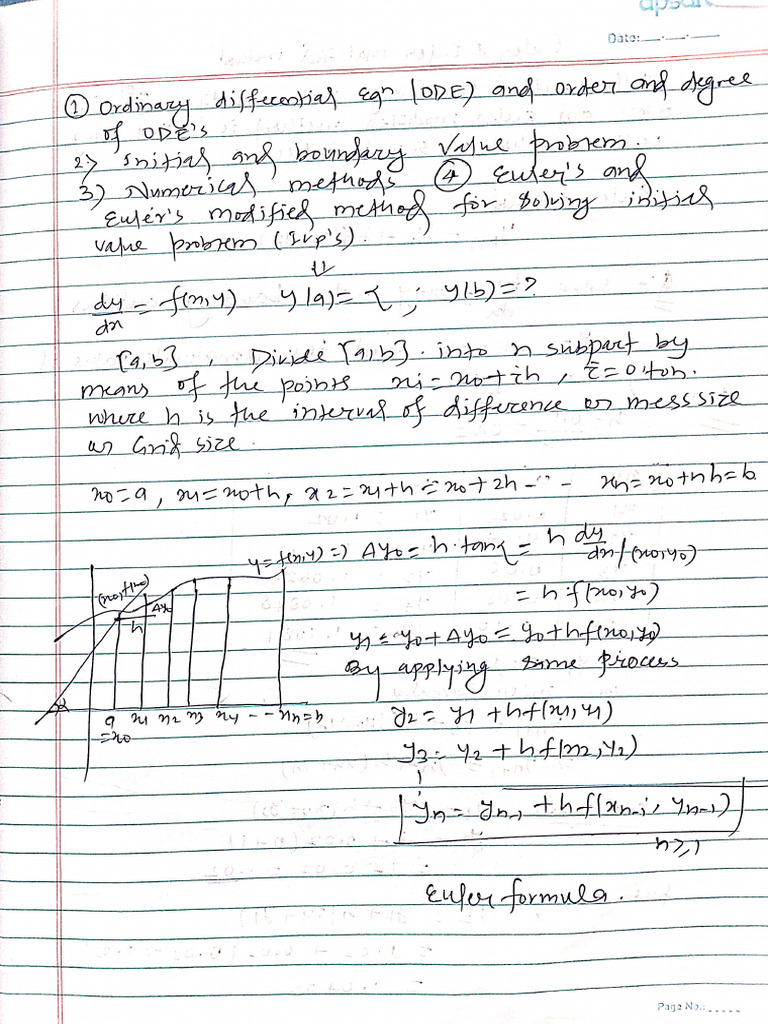 apsara
Date:__.__.__
① Ordinary differential Eqn (ODE) and order and degree
of ODE's
2) Initial and boundary value problem.
3) Numerical methods ④ Euler's and
Euler's modified method for solving initial
value problem (IVP's).
⇓
dy/dx = f(x,y) y(a) = α ; y(b) = ?
[a,b] , Divide [a,b] into n subpart by
means of the points xi = x0 + ih , i = 0 to n.
where h is the interval of difference or mess size
or Grid size.
x0 = a , x1 = x0+h, x2 = x1+h = x0+2h - - - xn = x0+nh = b
y = f(x,y) => Δy0 = h·tanα = h dy/dx|(x0,y0)
= h·f(x0,y0)
y1 = y0 + Δy0 = y0 + hf(x0,y0)
By applying same process
y2 = y1 + hf(x1,y1)
y3 = y2 + hf(x2,y2)
yn = yn-1 + hf(xn-1, yn-1)
n ≥ 1
Euler formula.
Δy0
h
α
a x1 x2 x3 x4 - - - xn=b
=x0
Page No.: .....